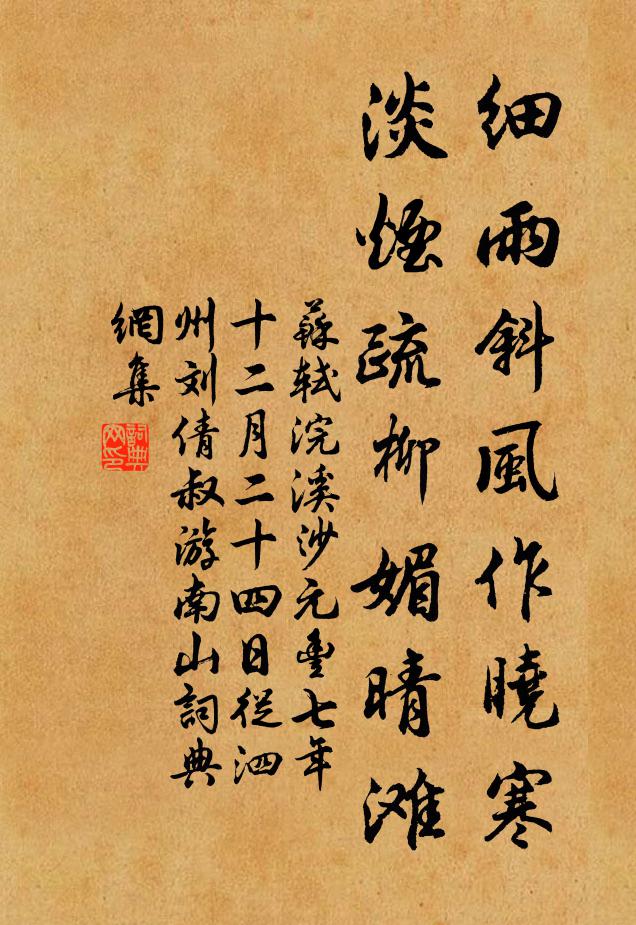 细雨斜風作曉寒
淡煙疏柳媚晴滩
蘇轼浣溪沙元豊七年
十二月二十四日從泗
州刘倩叔游南山詞典
網集
詞典網印